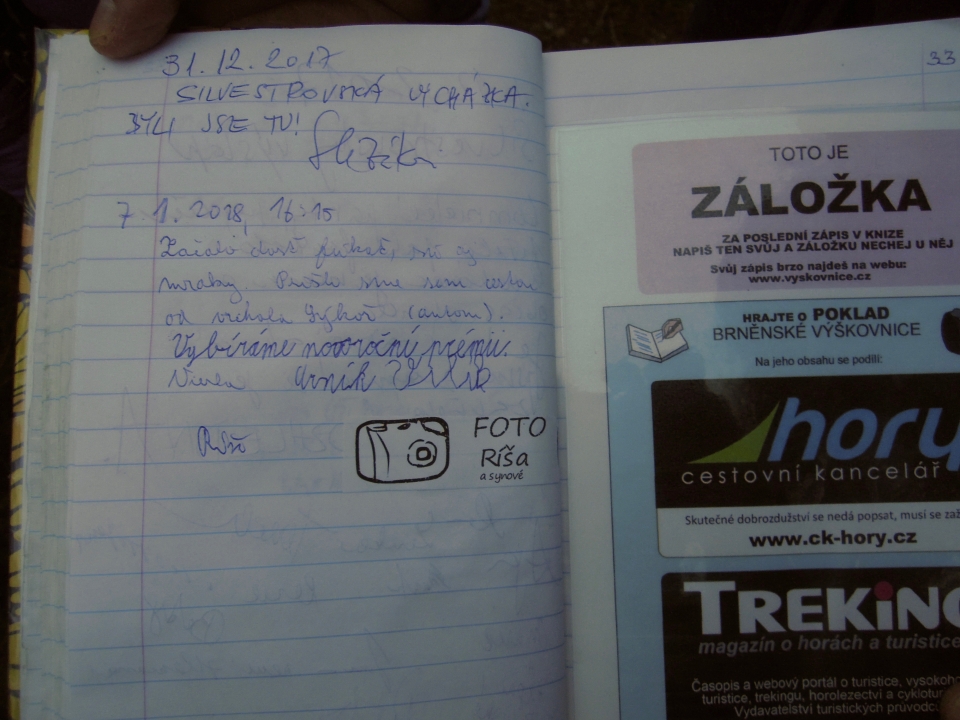 31.12.2017
SILVESTROVSKÁ VYCHÁZKA.
BYLI JSE TU!
7.1.2018, 16:15
Začalo dosť fúkať, sú aj
mrazy. Prešli sme sem cestou
od vrcholu Sýkoř (autom).
Vybíráme novoroční prémii.
FOTO
Ríša
a synové
33
TOTO JE
ZÁLOŽKA
ZA POSLEDNÍ ZÁPIS V KNIZE
NAPIŠ TEN SVŮJ A ZÁLOŽKU NECHEJ U NĚJ
Svůj zápis brzo najdeš na webu:
www.vyskovnice.cz
HRAJTE O POKLAD
BRNĚNSKÉ VÝŠKOVNICE
Na jeho obsahu se podílí:
hory
cestovní kancelář
Skutečné dobrozdužství se nedá popsat, musí se zaž
www.ck-hory.cz
TREKING
magazín o horách a turistice
Časopis a webový portál o turistice, vysokoho
turistice, trekingu, horolezectví a cyklotur
Vydavatelství turistických průvodc